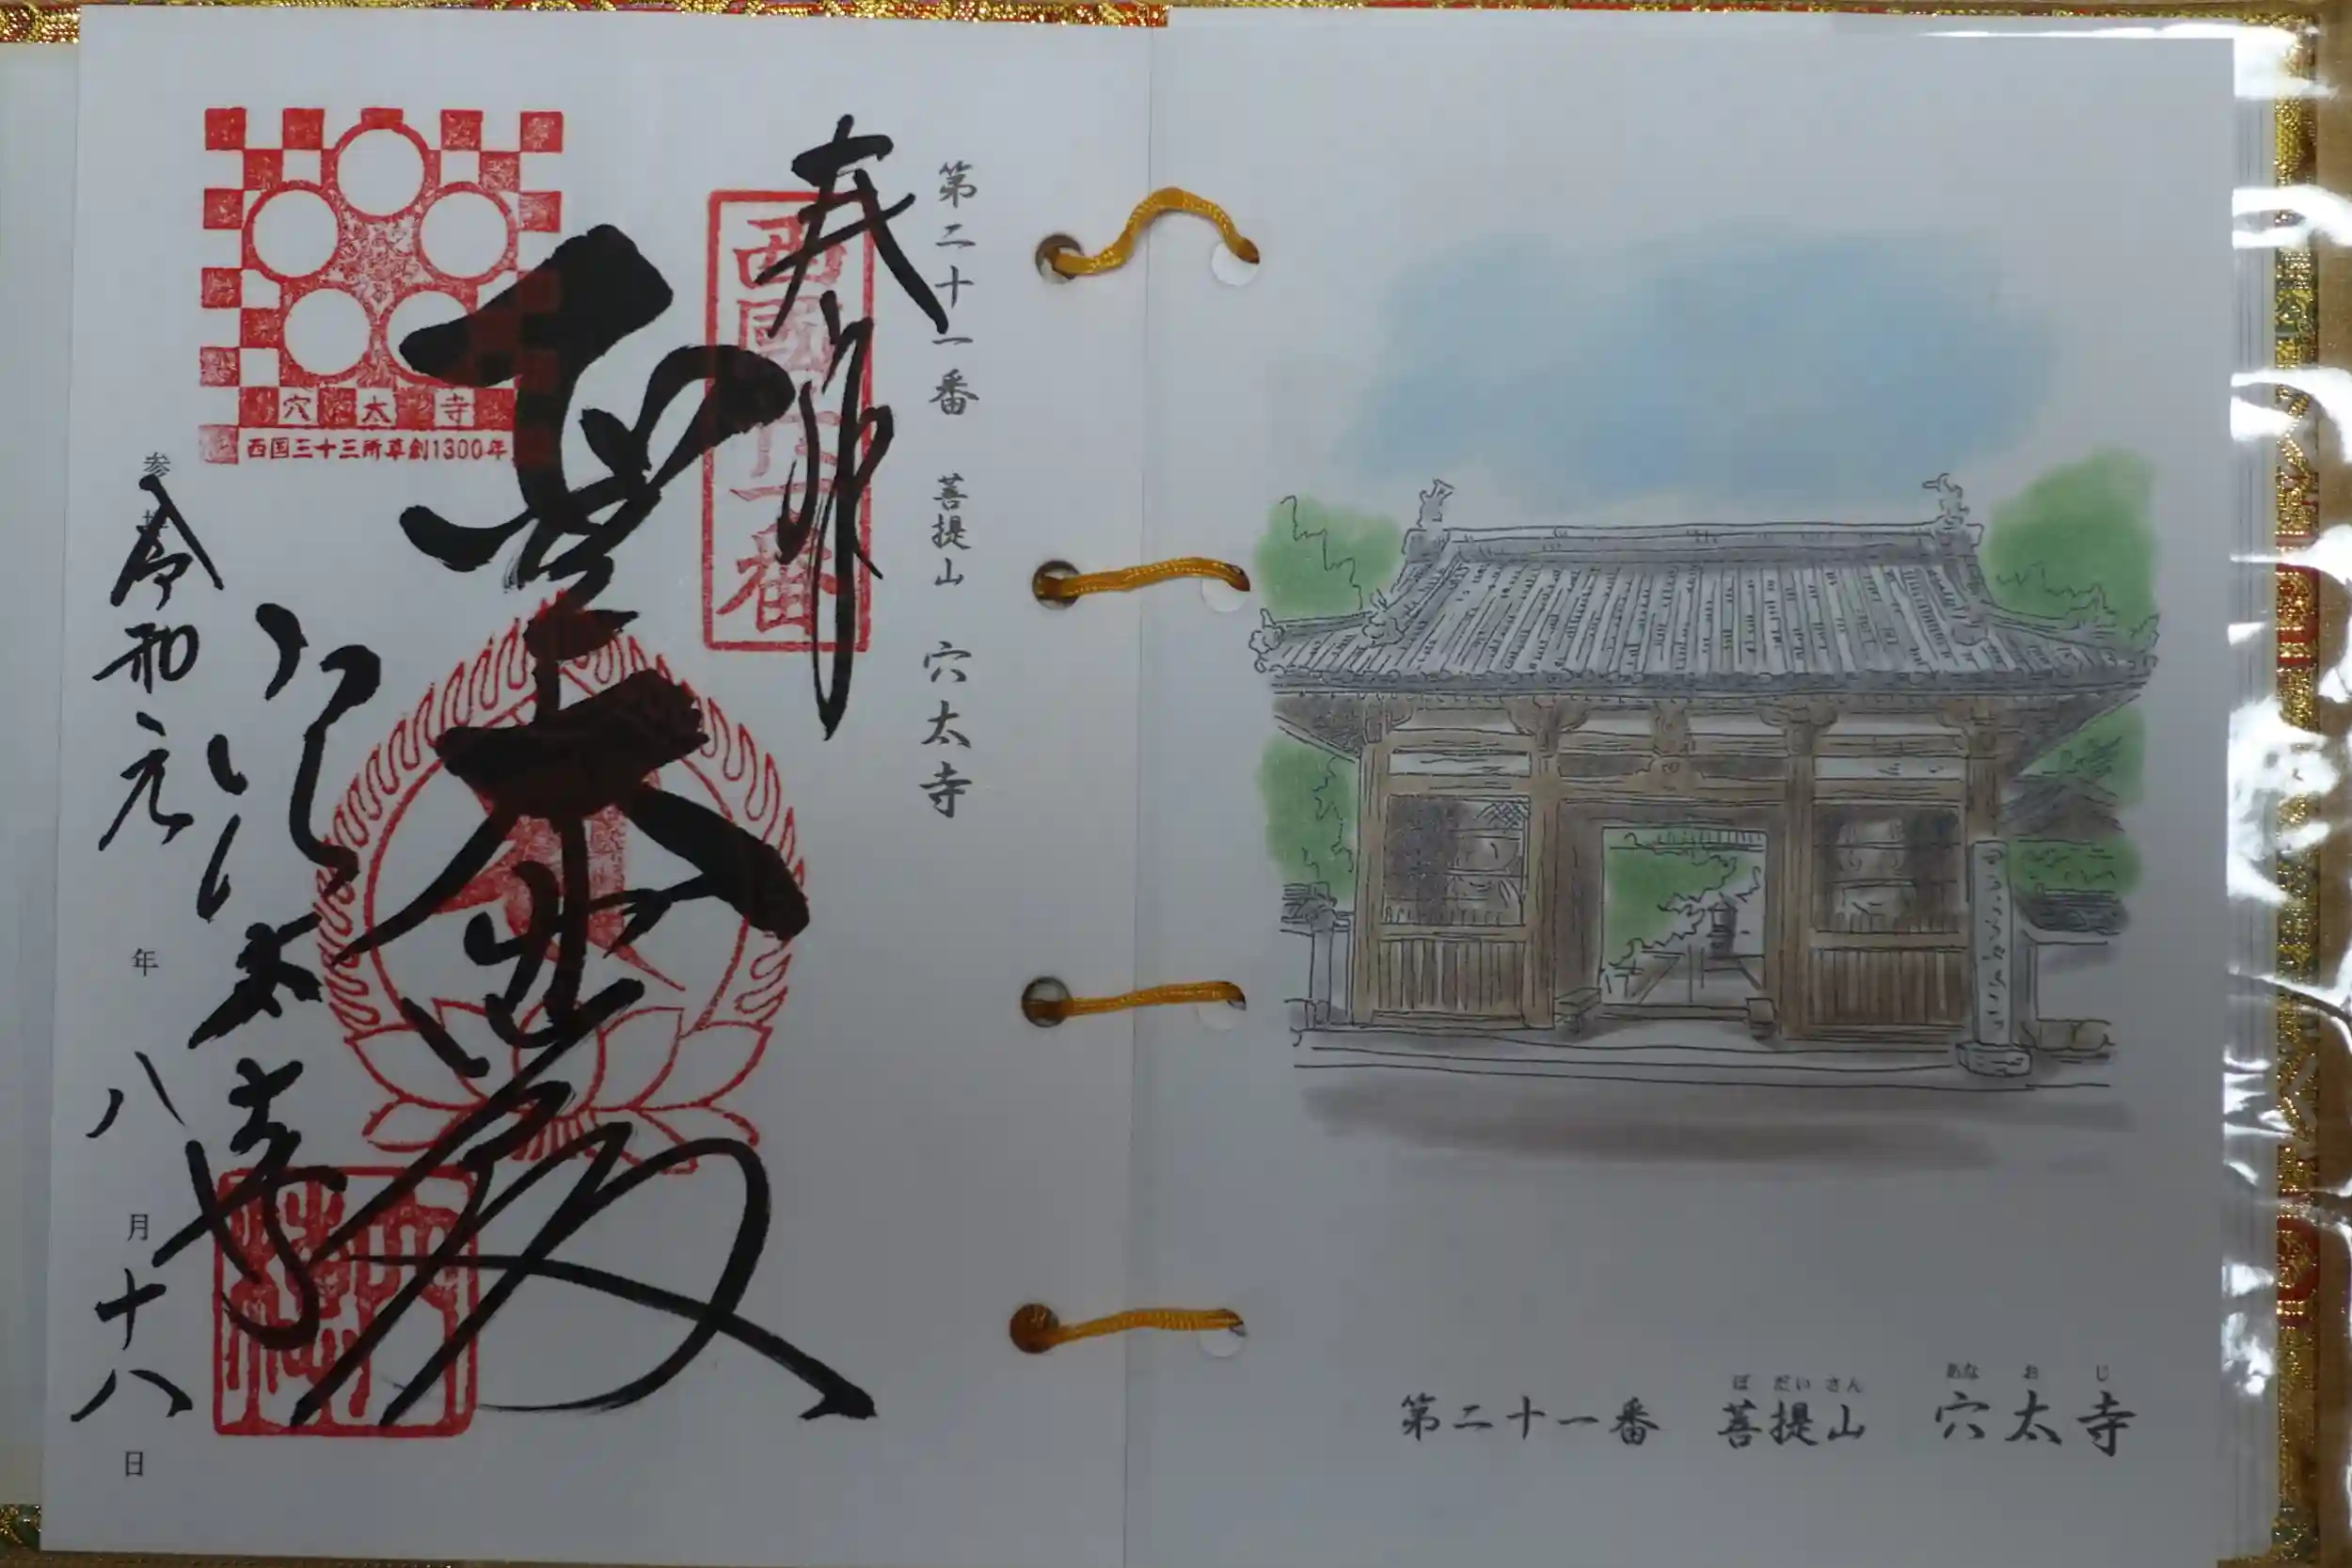 第二十一番 菩提山 穴太寺
奉拝
西国廿一番
聖大悲殿
穴太寺
西国三十三所草創1300年
穴太寺
参拝
令和元年八月十八日
ぼだいさん あなおじ
第二十一番 菩提山 穴太寺